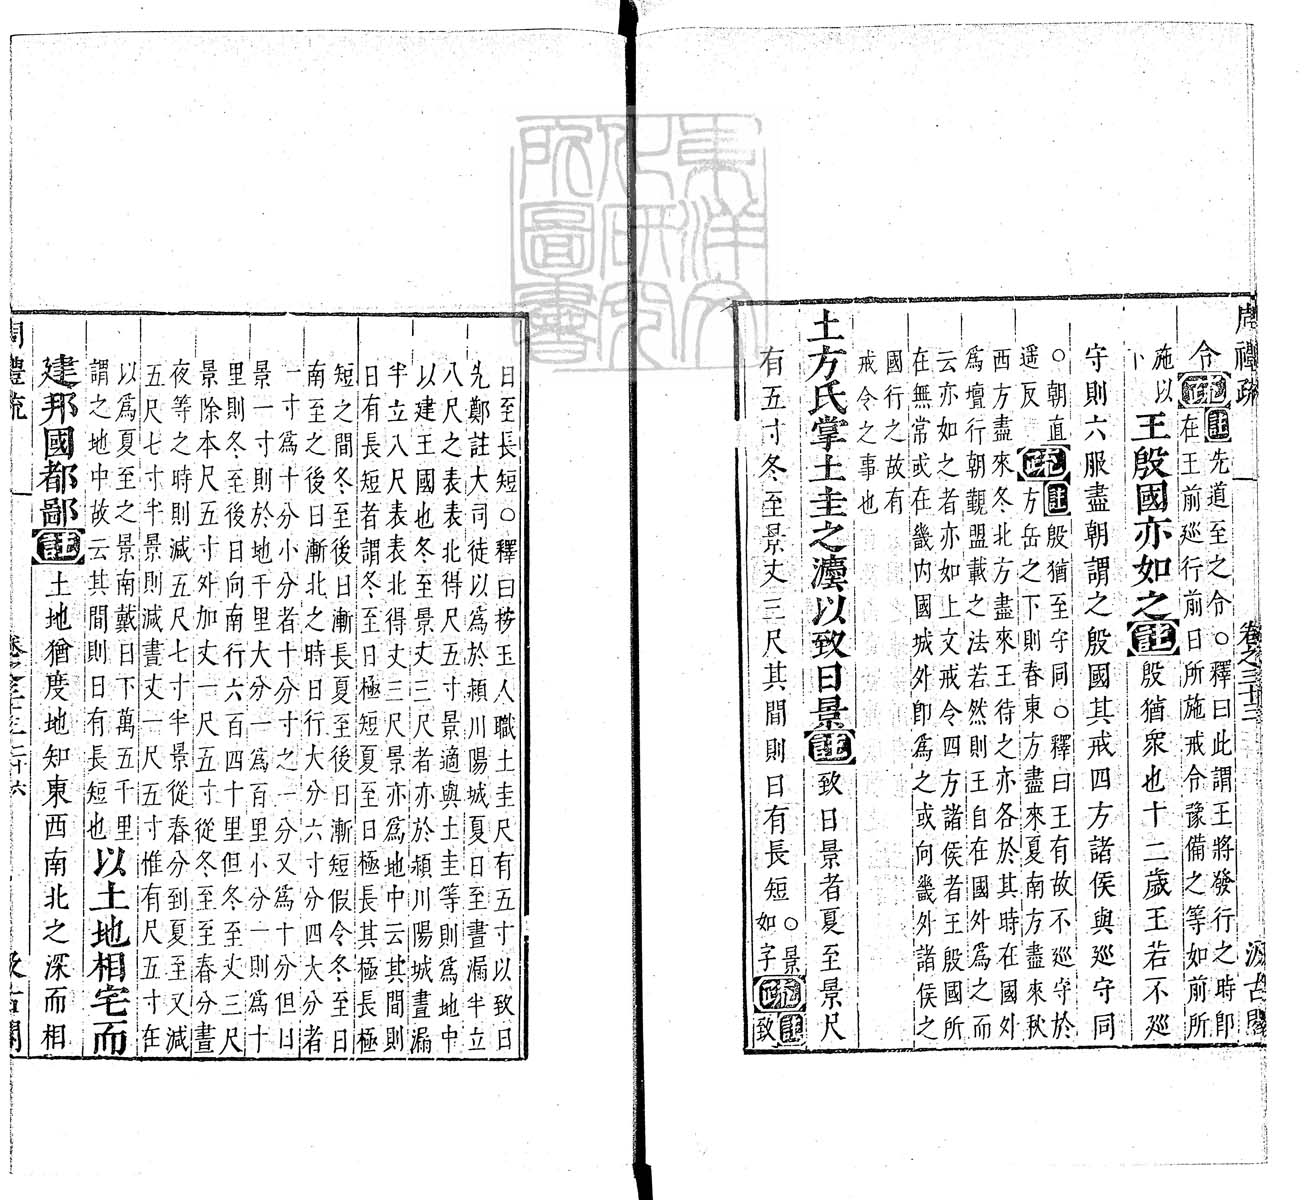 周禮疏 卷之三十三 汲古閣
令疏註先道至之令○釋曰此謂王將發行之時卽
在王前巡行前日所施戒令豫備之等如前所
施以
卜
王殷國亦如之註殷猶衆也十二歲王若不巡
守則六服盡朝謂之殷國其戒四方諸侯與巡守同
○朝直
遥反
疏註殷猶至守同○釋曰王有故不巡守於
方岳之下則春東方盡來夏南方盡來秋
西方盡來冬北方盡來王待之亦各於其時在國外
爲壇行朝覲盟載之法若然則王自在國外爲之而
云亦如之者亦如上文戒令四方諸侯者王殷國所
在無常或在畿内國城外卽爲之或向畿外諸侯之
國行之故有
戒令之事也
土方氏掌土圭之灋以致日景註致日景者夏至景尺
有五寸冬至景丈三尺其間則日有長短
○景
如字
疏註
致
日至長短○釋曰按玉人職土圭尺有五寸以致日
先鄭註大司徒以爲於潁川陽城夏日至晝漏半立
八尺之表表北得尺五寸景適與土圭等則爲地中
以建王國也冬至景丈三尺者亦於潁川陽城晝漏
半立八尺表表北得丈三尺景亦爲地中云其間則
日有長短者謂冬至日極短夏至日極長其極長極
短之間冬至後日漸長夏至後日漸短假令冬至日
南至之後日漸北之時日行大分六寸分四大分者
一寸爲十分小分者十分寸之一分又爲十分但日
景一寸則於地千里大分一爲百里小分一則爲十
里則冬至後日向南行六百四十里但冬至丈三尺
景除本尺五寸外加丈一尺五寸從冬至至春分晝
夜等之時則減五尺七寸半景從春分到夏至又減
五尺七寸半景則減晝丈一尺五寸惟有尺五寸在
以爲夏至之景南戴日下萬五千里
謂之地中故云其間則日有長短也
以土地相宅而
建邦國都鄙註土地猶度地知東西南北之深而相
周禮疏 卷之三十三 二十六 汲古閣
東洋文化研究所圖書